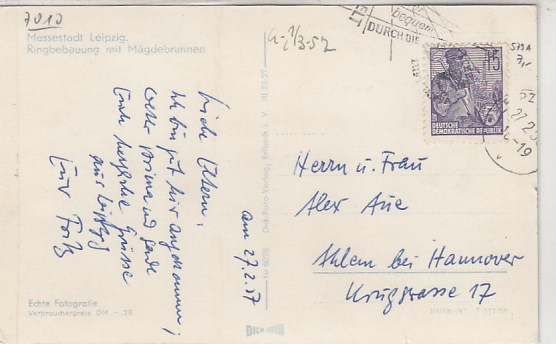 7010
Messestadt Leipzig.
Ringbebauung mit Mägdebrunnen
a. 1/3-57
bequem
DURCH DIE
15
DEUTSCHE
DEMOKRATISCHE REPUBLIK
27.2.5
-19
Liebe Eltern!
Ich bin gut hier angekommen,
Wetter prima und
Ende herzliche Grüsse
aus Leipzig
Euer Fritz
am 27.2.57
Herrn u. Frau
Alex Aue
Ahlem bei Hannover
Krugstrasse 17
Echte Fotografie
Verbraucherpreis DM -.20